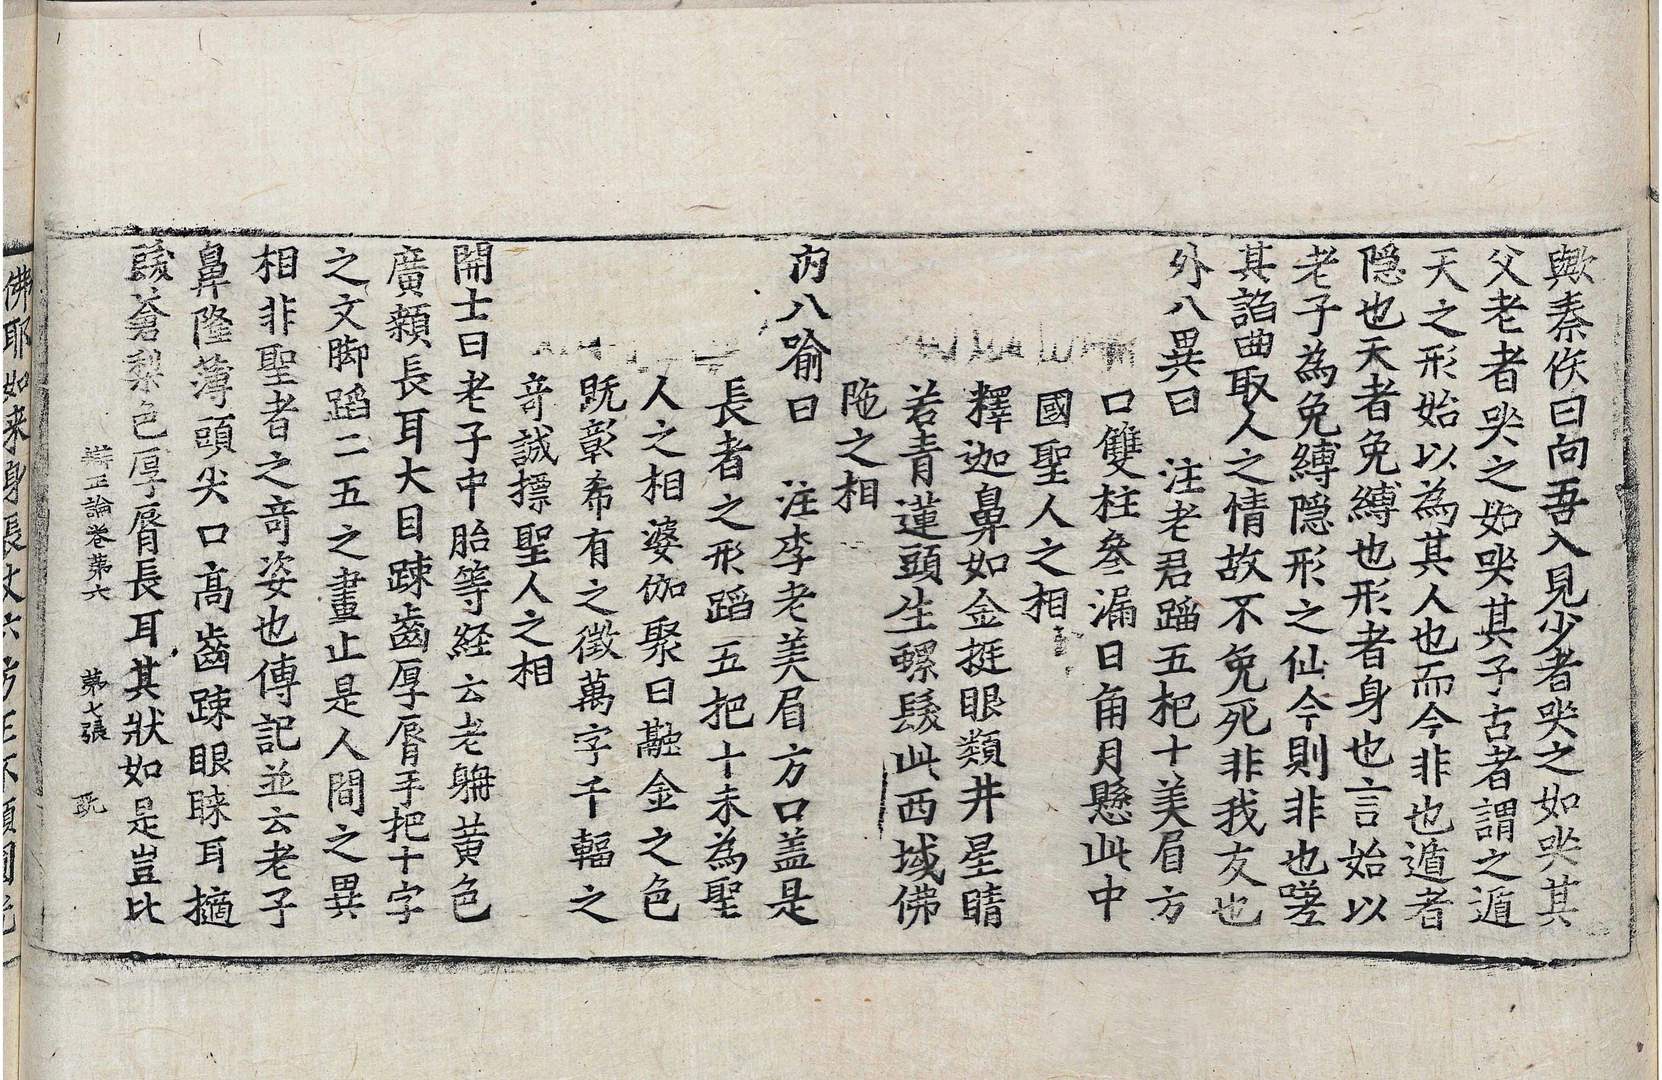 歟秦佚曰向吾入見少者哭之如哭其
父老者哭之如哭其子古者謂之遁
天之形始以為其人也而今非也遁者
隱也天者免縛也形者身也言始以
老子為免縛隱形之仙今則非也嗟
其諂曲取人之情故不免死非我友也
外八異曰 注老君蹈五把十美眉方
口雙柱叄漏日角月懸此中
國聖人之相
釋迦鼻如金挺眼類井星睛
若青蓮頭生螺髮此西域佛
陁之相
內八喻曰 注李老美眉方口盖是
長者之形蹈五把十未為聖
人之相婆伽聚日融金之色
旣彰希有之徵萬字千輻之
奇誠摽聖人之相
開士曰老子中胎等経云老耼黃色
廣顙長耳大目踈齒厚脣手把十字
之文脚蹈二五之畫止是人間之異
相非聖者之奇姿也傳記並云老子
鼻隆薄頭尖口高齒踈眼睞耳擿
髮蒼梨色厚脣長耳其狀如是豈比
辯正論卷苐六 苐七張 旣
佛耶如来身長丈六方正不傾圓光